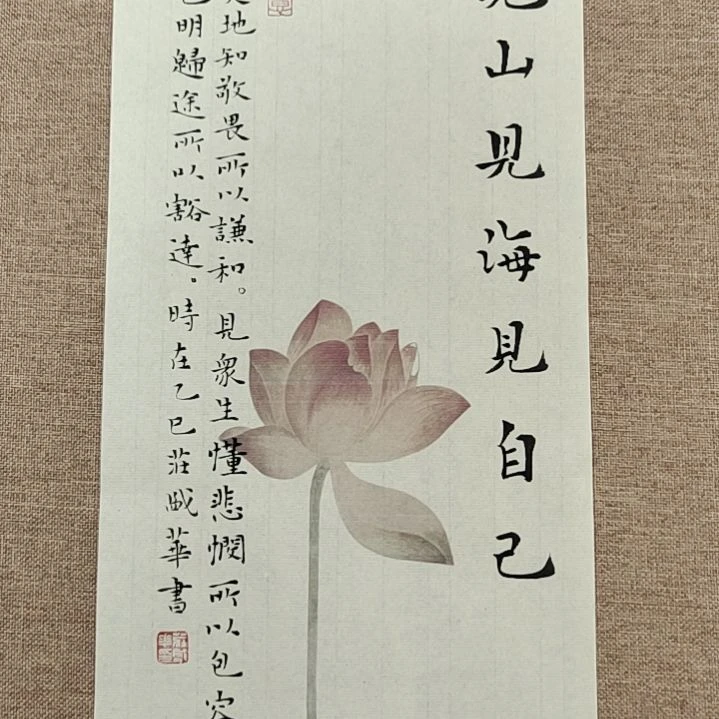 見山見海見自己
天地知敬畏所以謙和。見衆生懂悲憫所以包容
己明歸途所以豁達。時在乙巳莊華書